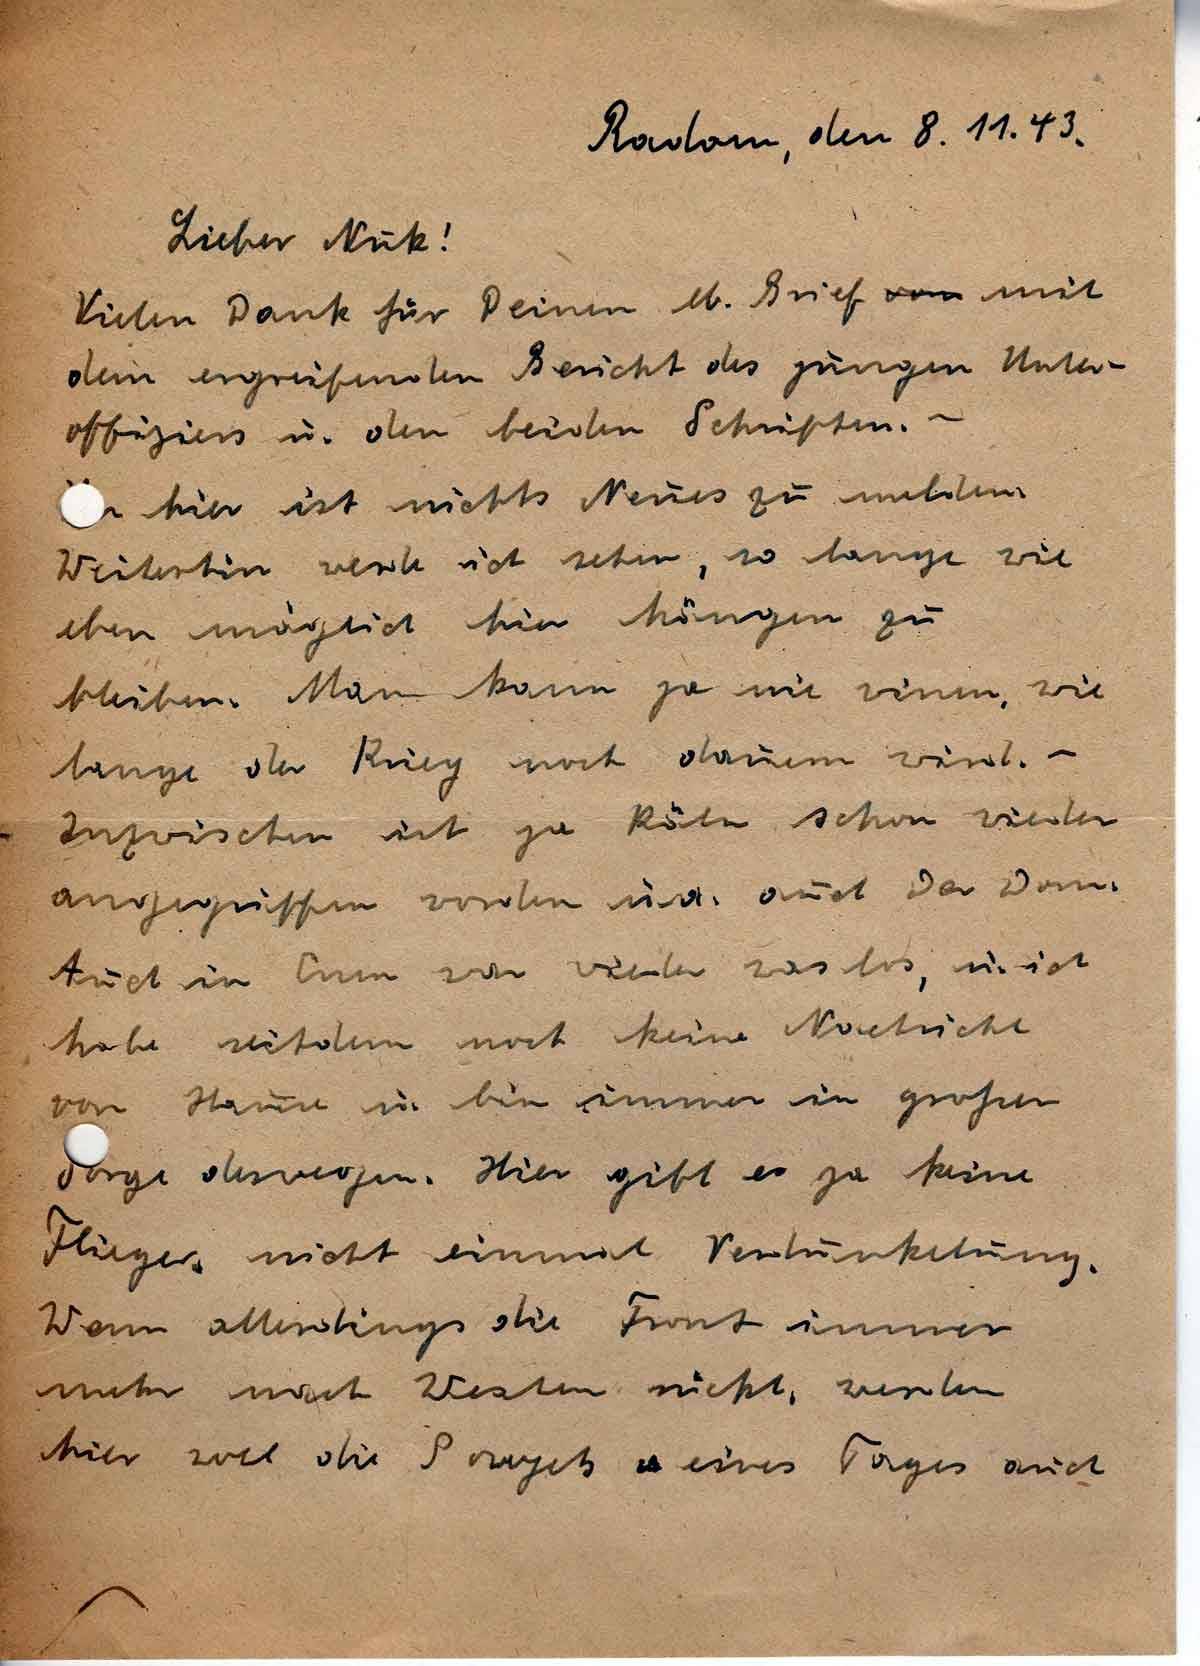 Radom, den 8. 11. 43.
Lieber Nuk!
Vielen Dank für Deinen lb. Brief von mit
dem ergreifenden Bericht des jungen Unter-
offiziers u. den beiden Schriften. –
hier ist nichts Neues zu melden.
Weiterhin werde ich sehen, so lange wie
eben möglich hier hängen zu
bleiben. Man kann ja nie wissen, wie
lange der Krieg noch dauern wird. –
Inzwischen ist ja Köln schon wieder
angegriffen worden u. a. auch der Dom.
Auch in war wieder was los, u. ich
habe seitdem noch keine Nachricht
von Hause u. bin immer in großer
Sorge deswegen. Hier gibt es ja keine
Flieger, nicht einmal Verdunkelung.
Wenn allerdings die Front immer
mehr nach Westen rückt, werden
hier wohl die Sowjets eines Tages auch